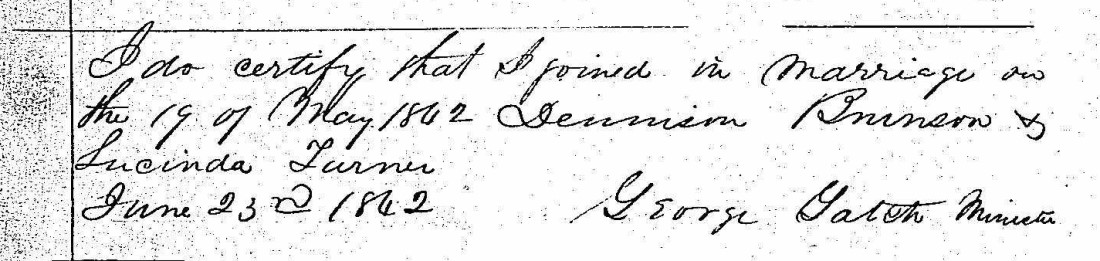 I do certify that I joined in marriage on
the 19 of May 1842 Dennison Brunson &
Lucinda Turner
June 23rd 1842 George Gatch Minister